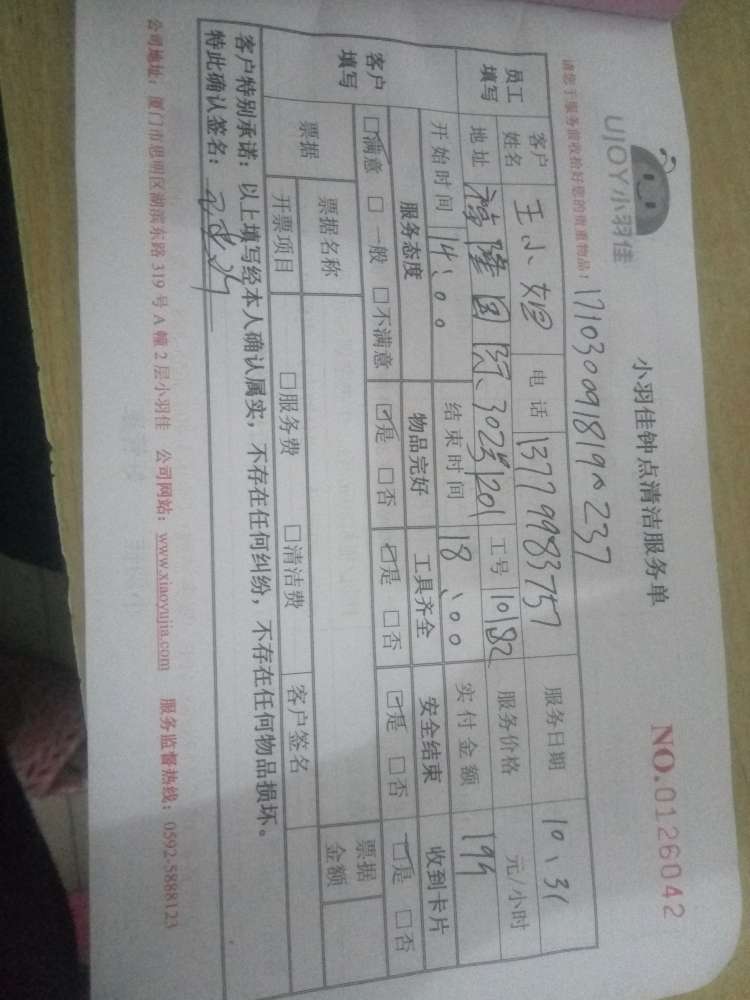 UJOY小羽佳
小羽佳钟点清洁服务单
NO.0126042
请您于服务前收拾好您的贵重物品! 171030091819237
员工填写 客户姓名 王小姐 电话 13779983757 服务日期 10、31
地址 隆国 302 1201 工号 10182 服务价格 元/小时
开始时间 14、00 结束时间 18、00 实付金额
客户填写 服务态度 物品完好 工具齐全 安全结束 收到卡片
☑满意 □一般 □不满意 ☑是 □否 ☑是 □否 ☑是 □否 ☑是 □否
票据 票据名称 票据金额
开票项目 □服务费 □清洁费 客户签名
客户特别承诺:以上填写经本人确认属实,不存在任何纠纷,不存在任何物品损坏。
特此确认签名:
公司地址:厦门市思明区湖滨东路319号A幢2层小羽佳 公司网站:www.xiaoyujia.com 服务监督热线:0592-5888123